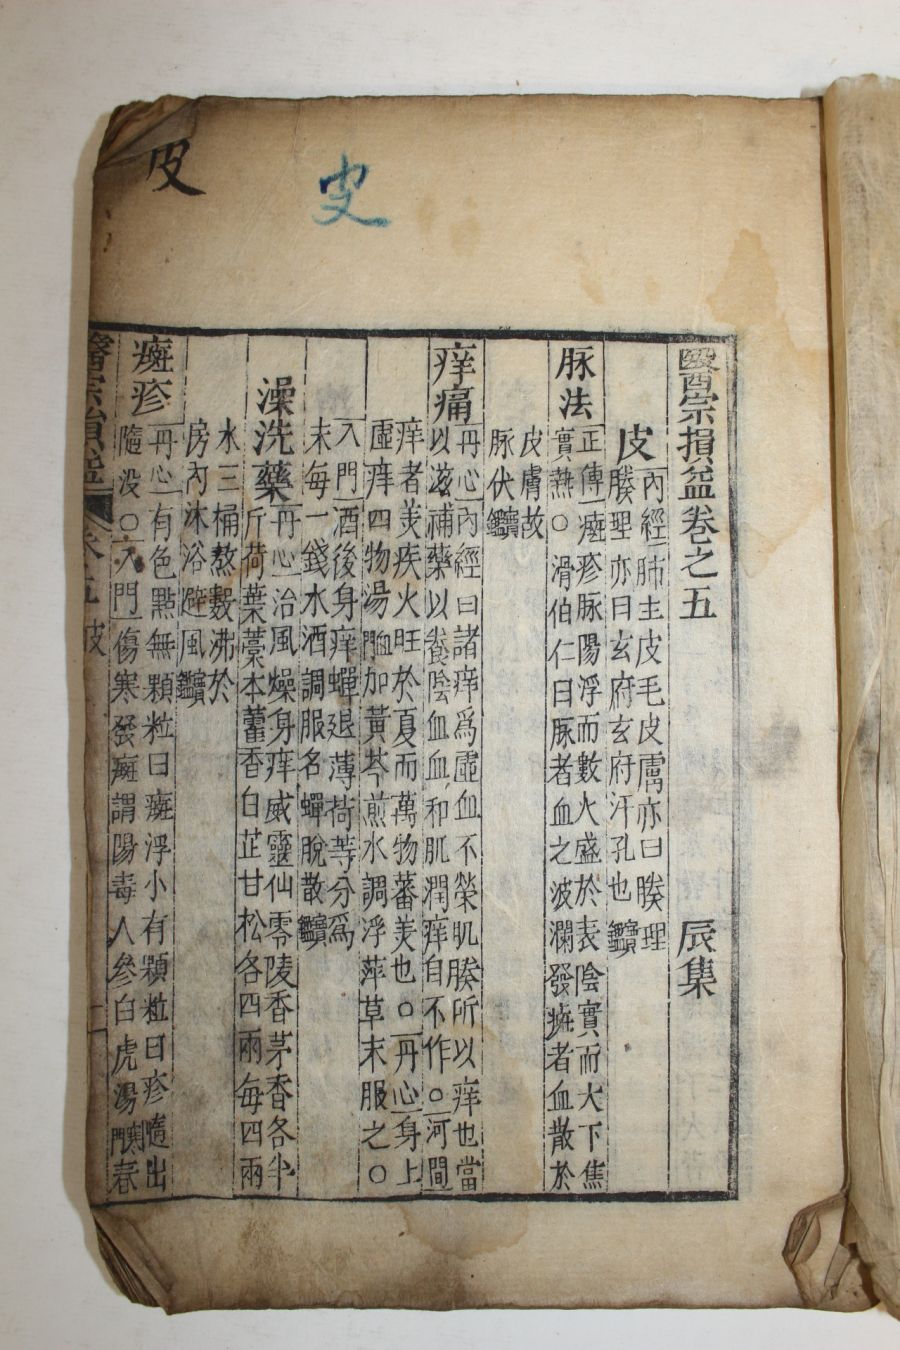 皮
史
醫宗損益卷之五 辰集
皮
內經肺主皮毛皮膚亦曰腠理
腠理亦曰玄府玄府汗孔也
脉法
正傳癍疹脉陽浮而數火盛於表陰實而大下焦
實熱○滑伯仁曰脉者血之波瀾發癍者血散於
皮膚故
脉伏
痒痛
丹心內經曰諸痒爲虛血不榮肌腠所以痒也當
以滋補藥以養陰血血和肌潤痒自不作○河間
痒者美疾火旺於夏而萬物蕃美也○丹心身上
虛痒四物湯加黃芩煎水調浮萍草末服之○
入門酒後身痒蟬退薄荷等分爲
末每一錢水酒調服名蟬脫散
澡洗藥
丹心治風燥身痒威靈仙零陵香茅香各半
斤荷葉藁本藿香白芷甘松各四兩每四兩
水三桶熬數沸於
房內沐浴避風
癍疹
丹心有色點無顆粒曰癍浮小有顆粒曰疹隨出
隨没○入門傷寒發癍謂陽毒人參白虎湯春
醫宗損益 卷五 皮 一